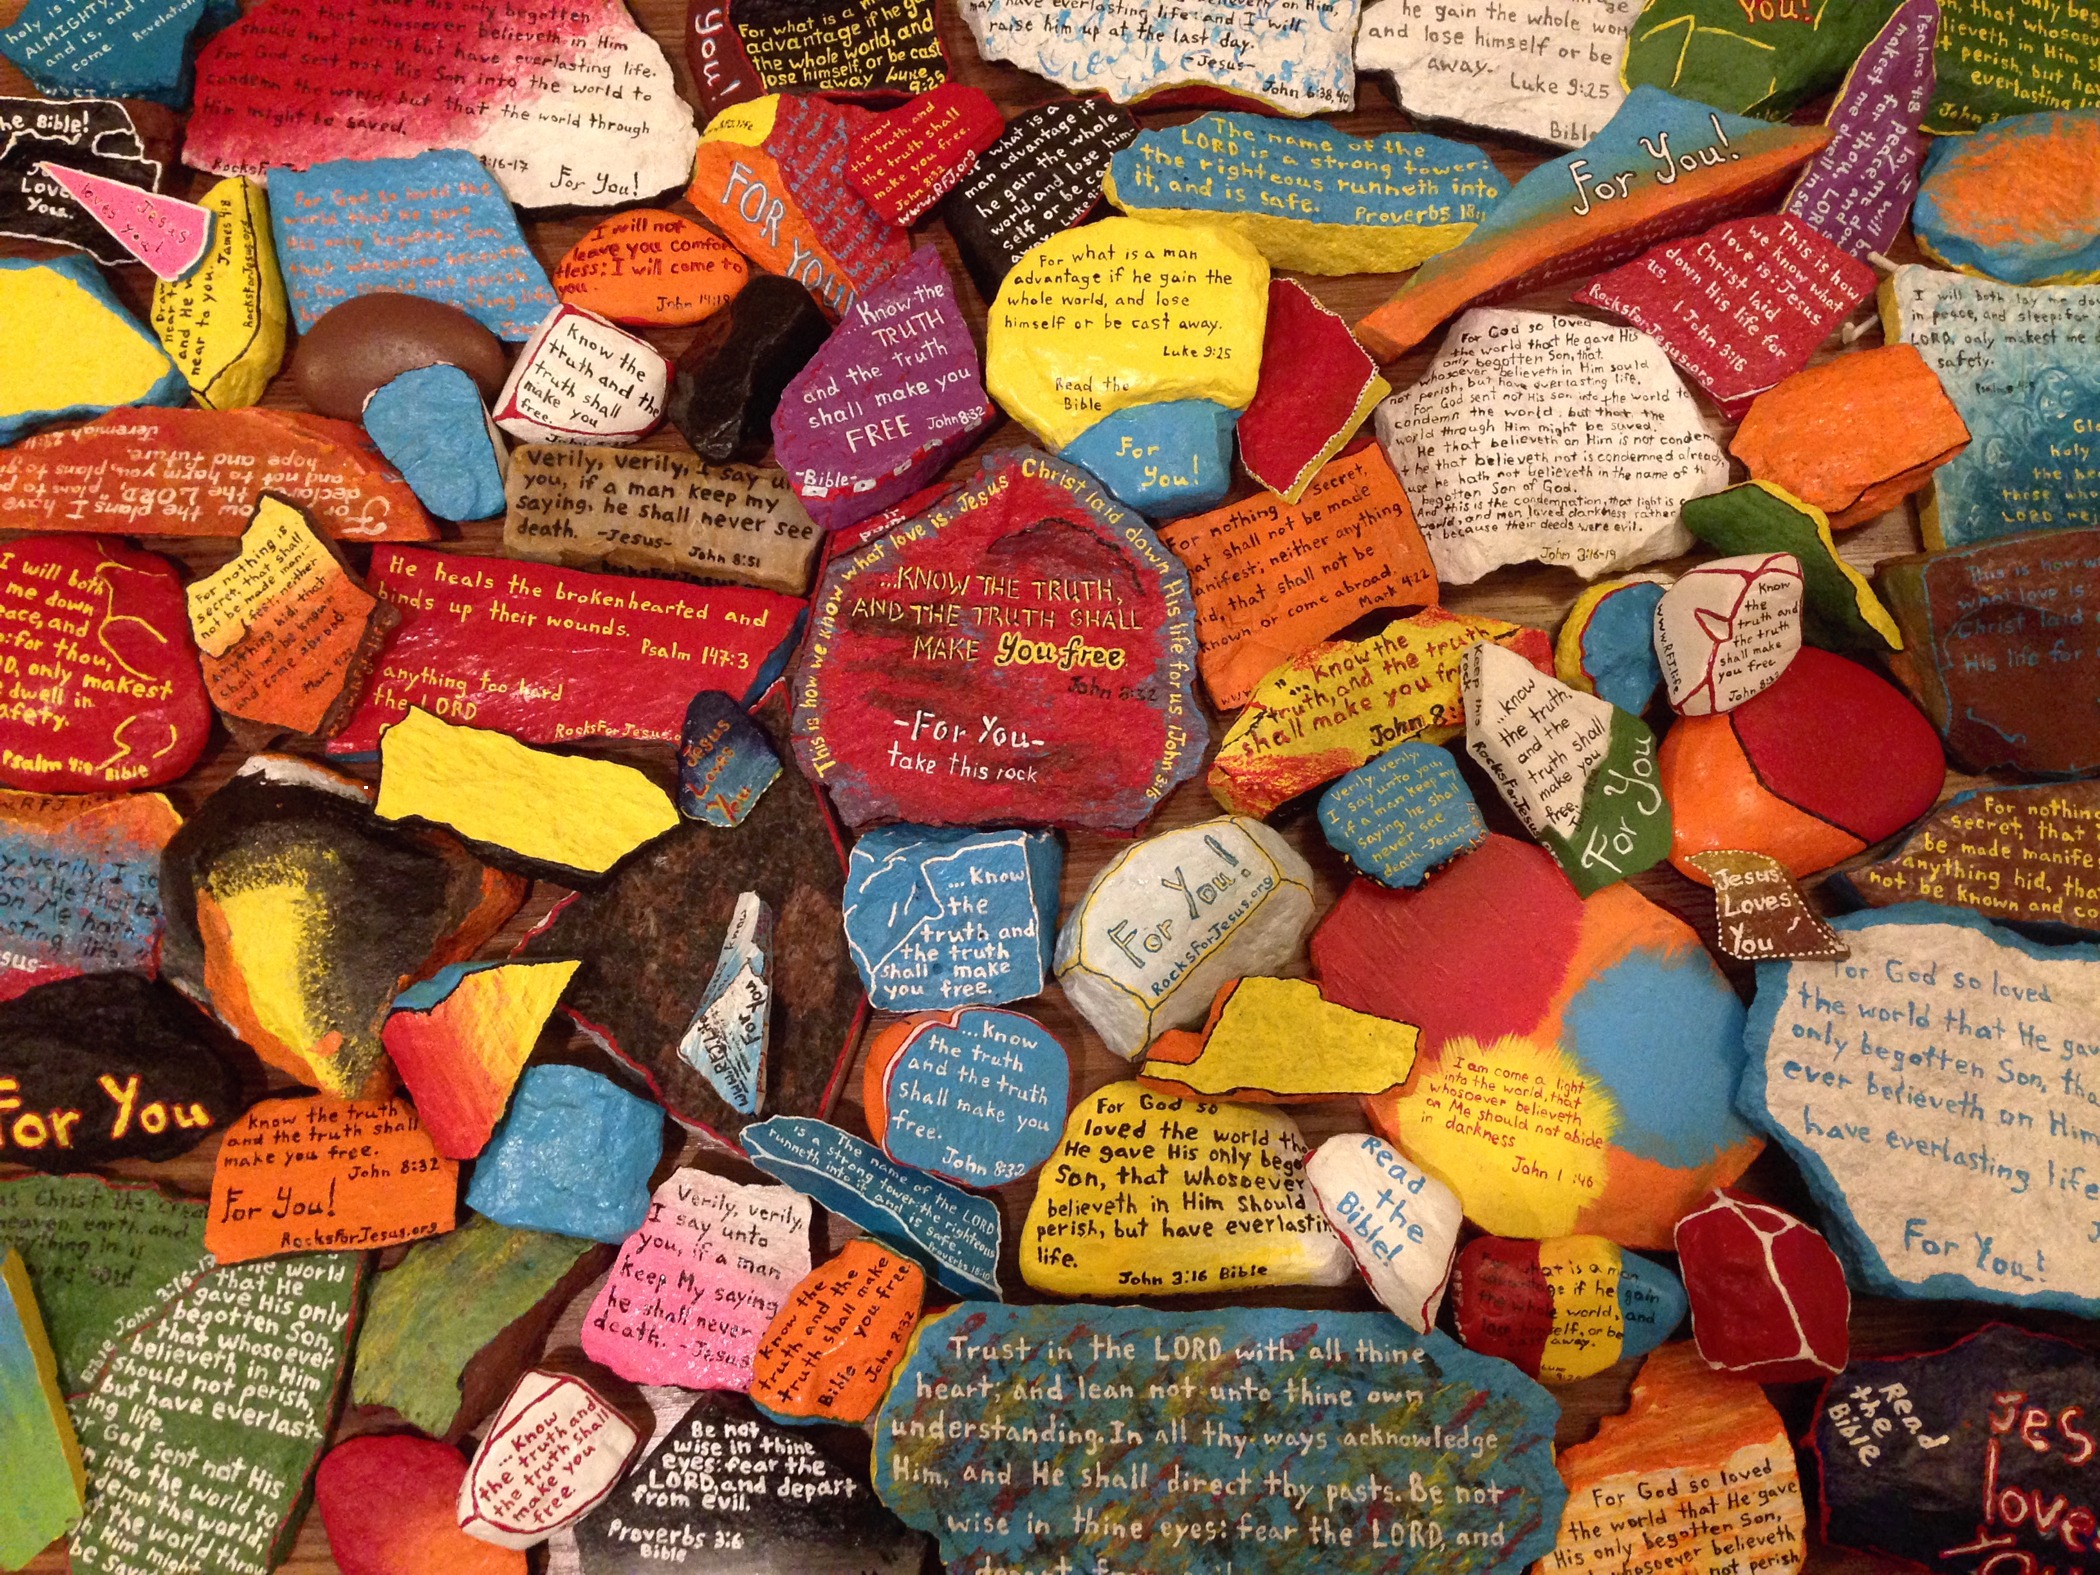 holy is
ALMIGHTY,
and is,
come Revelation
His only begotten
Son, that whosoever believeth in Him
should not perish but have everlasting life.
For God sent not His Son into the world to
condemn the world; but that the world through
Him might be saved.
3:16-17
For You!
You!
For what is a
advantage if he
the whole world, and
lose himself, or be cast
away Luke
9:25
may have everlasting life: and I will
raise him up at the last day.
-Jesus-
John 6:38,40
he gain the whole
and lose himself or be
away.
Luke 9:25
You!
Psalms 4:8
everlasting
John 3
the Bible!
Love
You.
Jesus
loves
you!
near to you. James 4:8
and He
RocksForJesus.org
For God so loved the
world that He gave
His only begotten Son,
that whosoever believeth
in Him should not perish
I will not
leave you comfor-
tless: I will come to
you.
John 14:18
FOR YOU!
know
the truth, and
the truth shall
make you free.
John 8:32
www.RFJ.org
what is a
man advantage if
he gain the whole
world, and lose him-
self or be
Luke
The name of the
LORD is a strong tower:
the righteous runneth into
it, and is safe. Proverbs 18:
For You!
This is how
we know what
love is: Jesus
Christ laid
down His life for
us. 1 John 3:16
RocksForJesus.org
I will both lay me
in peace, and sleep: for
LORD, only makest me
safety.
Know the
truth and the
truth shall
make you
free.
Know the
TRUTH
and the truth
shall make you
FREE John 8:32
-Bible-
For what is a man
advantage if he gain the
whole world, and lose
himself or be cast away.
Luke 9:25
Read the
Bible
For
You!
For God so loved
the world that He gave His
only begotten Son, that
whosoever believeth in Him sould
not perish, but have everlasting life.
For God sent not His son into the world to
condemn the world; but that the
world through Him might be saved.
He that believeth on Him is not condem
he that believeth not is condemned already,
he hath not believeth in the name of
begotten Son of God.
And this is the condemnation, that light is
world, and men loved darkness rather
because their deeds were evil.
John 3:16-19
Jeremiah 29:11
hope and future.
and not to harm you, plans to
declares the LORD,
know the plans I have
For
Verily, verily, I say
you, if a man keep my
saying, he shall never see
death. -Jesus- John 8:51
This is how we know what love is: Jesus Christ laid down His life for us. 1 John 3:16
...KNOW THE TRUTH,
AND THE TRUTH SHALL
MAKE You free
John 8:32
-For You-
take this rock
For nothing
secret,
that shall not be made
manifest; neither anything
hid, that shall not be
known or come abroad.
Mark 4:22
I will both
me down
peace, and
for thou,
only makest
dwell in
safety.
Psalm 4:8 Bible
For nothing is
secret, that shall
not be made mani-
fest: neither
anything hid, that
shall not be known
and come abroad
Mark 4:22
He heals the brokenhearted and
binds up their wounds.
Psalm 147:3
anything too hard
the LORD
RocksForJesus.o
Jesus
Loves
You
"...Know the
truth, and the truth
shall make you free
John 8:
Know
the
truth and
the truth
shall make
you free
John 8:32
www.RFJ.life
This is how
what love is
Christ laid
His life for
...know
the truth,
and the
truth shall
make you
free.
Keep this
rock
RocksForJesus
For You
Verily, verily, I
say unto you,
if a man keep my
saying, he shall
never see
death -Jesus-
Jesus
Loves
You
For nothing
secret, that
be made manife
anything hid, tha
not be known and co
verily, verily I
on Me hath
For You
... Know
the
truth and
the truth
shall make
you free.
For You!
RocksForJesus.org
know
For You
...Know
the truth
and the truth
shall make you
free.
John 8:32
I am come a light
into the world, that
whosoever believeth
on Me should not abide
in darkness
For God so loved
the world that He gav
only begotten Son, tha
ever believeth on Him
have everlasting life
For You!
know the truth
and the truth shall
make you free.
John 8:32
For You!
RocksForJesus.org
is a
The name of the LORD
strong tower: the righteous
runneth into it and is safe.
Proverbs 18:10
For God so
loved the world tha
He gave His only bego
Son, that whosoever
believeth in Him should
perish, but have everlastin
life.
John 3:16 Bible
Read
the
Bible!
us Christ the
heaven, earth, and
everything in it
Bible John 3:16-17
the world
that He
gave His only
begotten Son,
that whosoever
believeth in Him
should not perish,
but have everlast-
ing life.
God sent not His
into the world to
demn the world;
t the world throu
Him might
be Saved
Verily, verily,
I say unto
you, if a man
keep My saying
he shall never
death. -Jesus
Know the
truth and the
truth shall make
you free
Bible John 8:32
For what is a man
advantage if he gain
the whole world, and
lose himself, or be
away.
...Know
the truth and
the truth shall
make you
free
Be not
wise in thine
eyes: fear the
LORD, and depart
from evil.
Proverbs 3:6
Bible
Trust in the LORD with all thine
heart; and lean not unto thine own
understanding. In all thy ways acknowledge
Him, and He shall direct thy pasts. Be not
wise in thine eyes: fear the LORD, and
For God so loved
the world that He gave
His only begotten Son,
whosoever believeth
not perish
Read
the
Bible
Jes
love